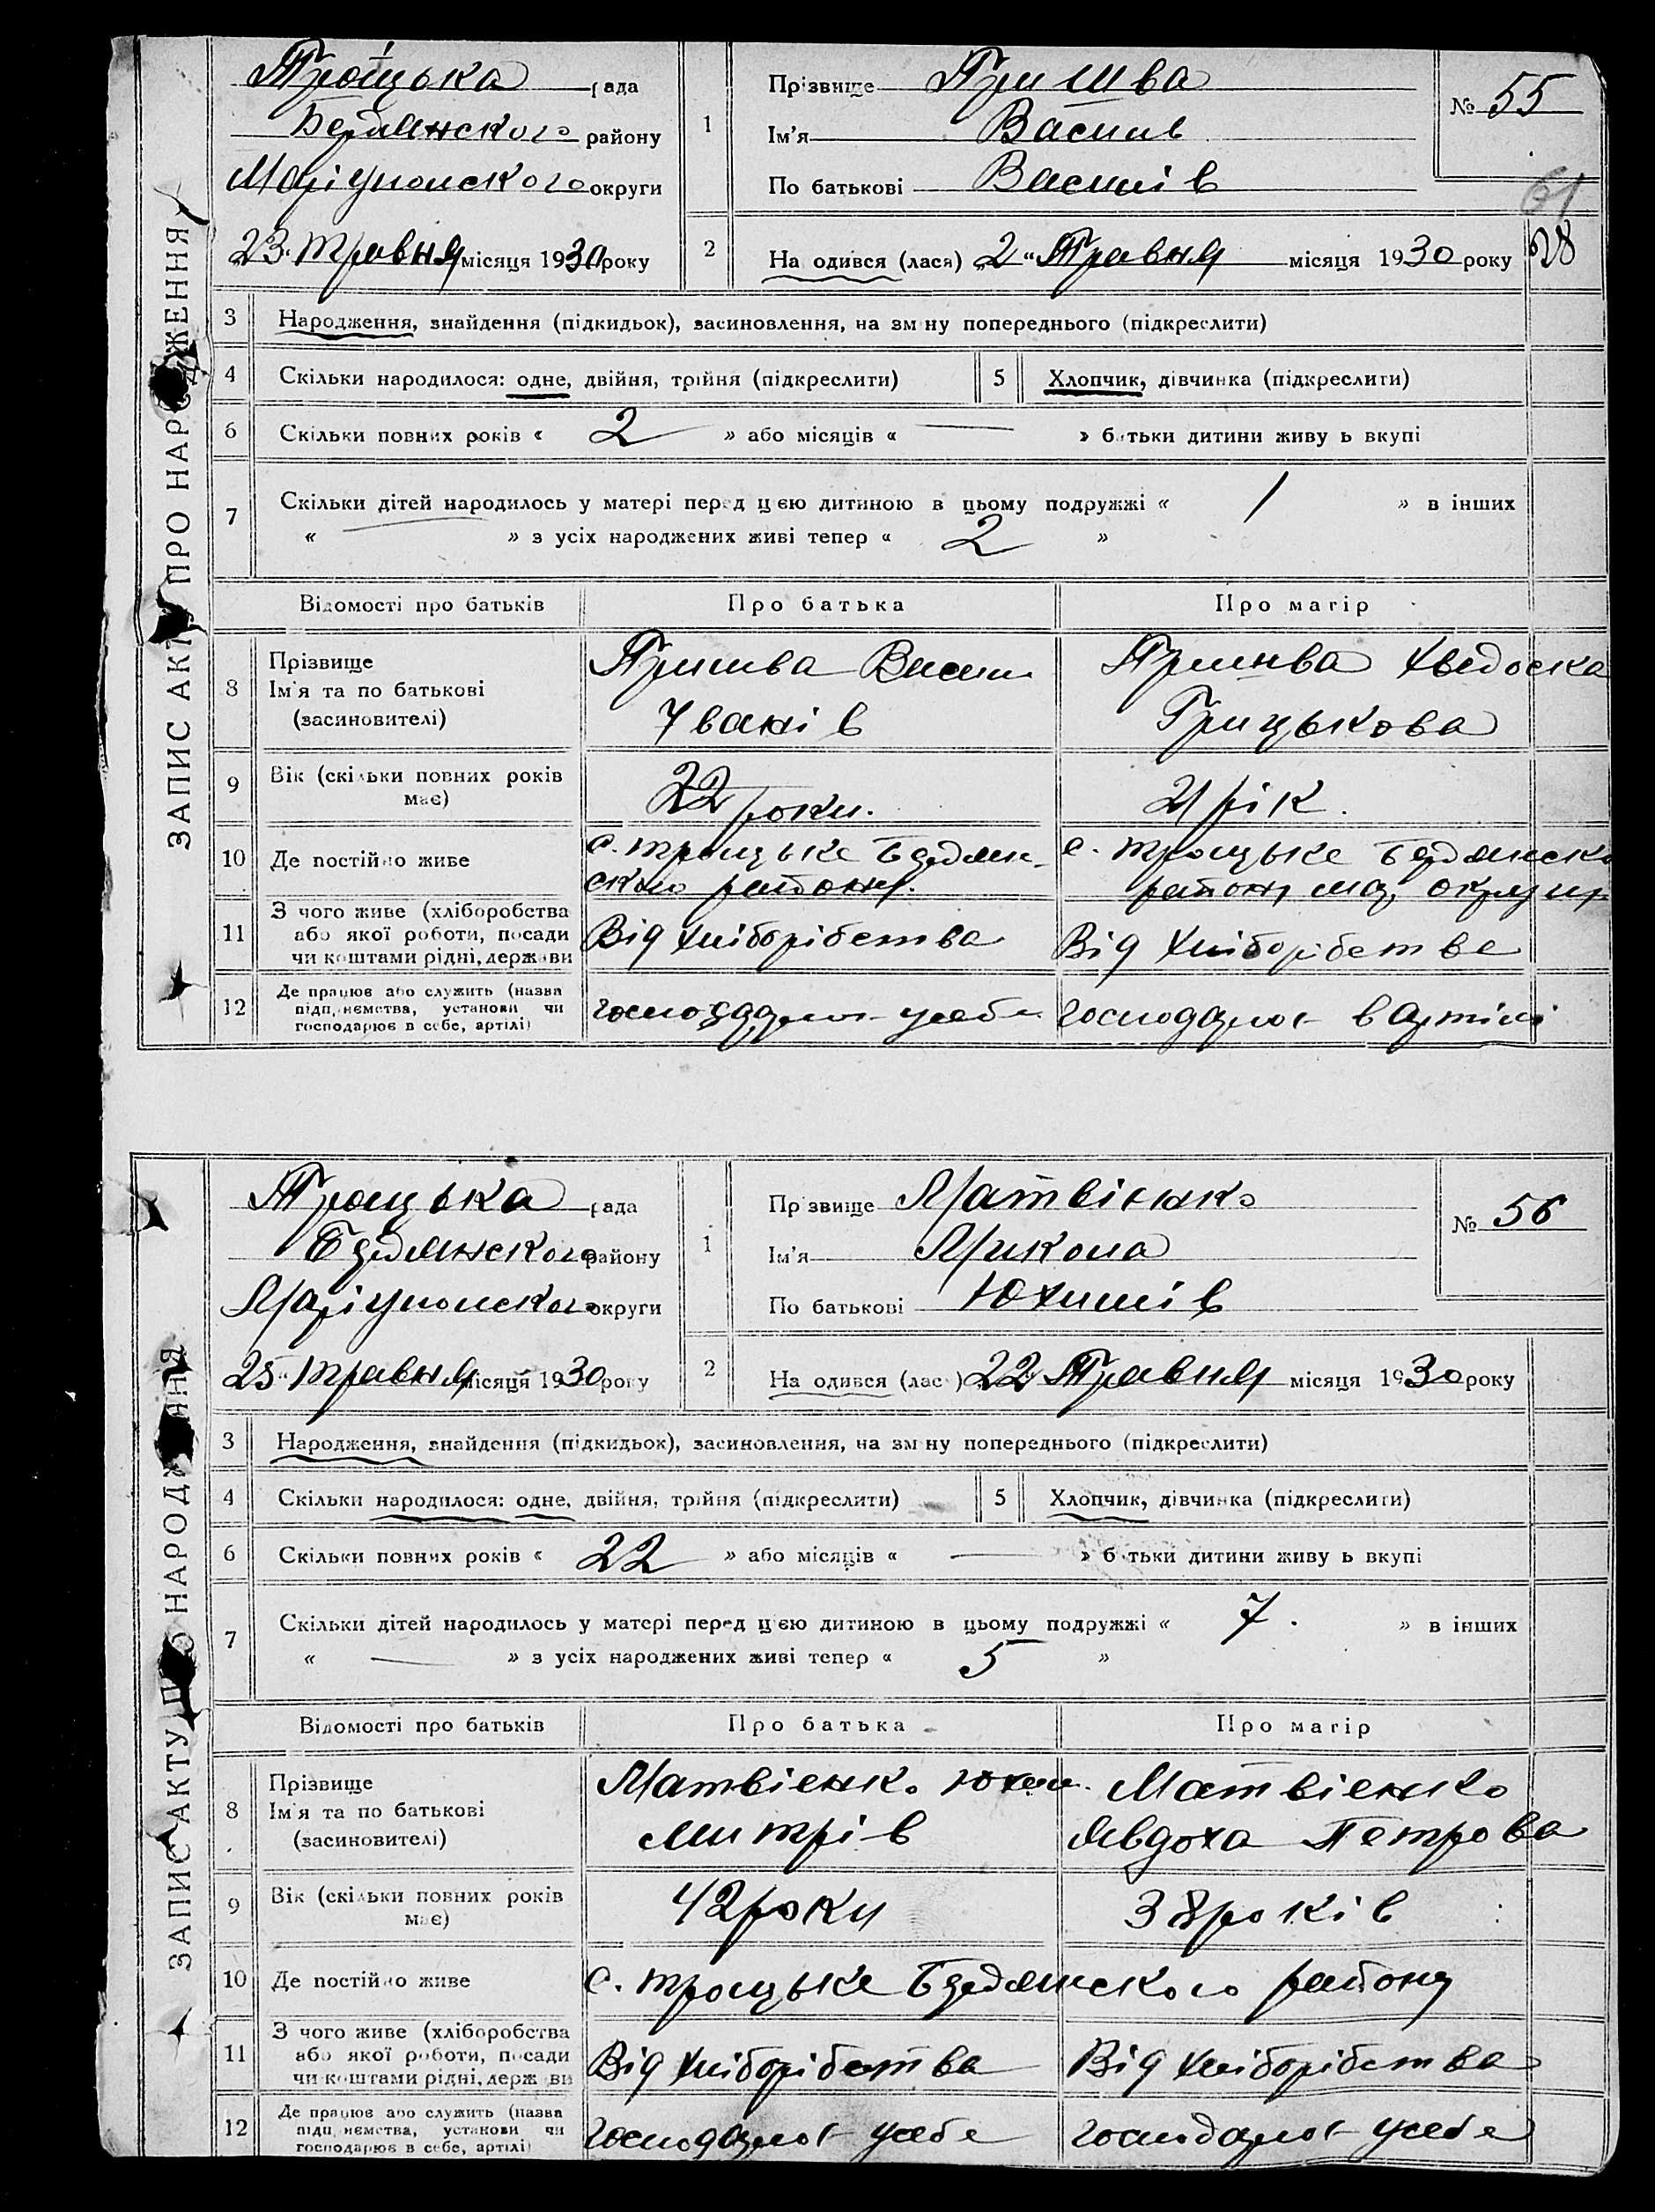 ЗАПИС АКТУ ПРО НАРОДЖЕННЯ
Троїцька рада
Бердянского району
Маріупольского округи
„23“ травня місяця 1930 року
1
Прізвище Гришва
Ім'я Василь
По батькові Василів
№ 55
61
2
На одився (лася) „2“ Травня місяця 1930 року
28
3 Народження, знайдення (підкидьок), засиновлення, на зм ну попереднього (підкреслити)
4 Скільки народилося: одне, двійня, трійня (підкреслити) 5 Хлопчик, дівчинка (підкреслити)
6 Скільки повних років « 2 » або місяців « — » батьки дитини живу ь вкупі
7 Скільки дітей народилось у матері перед цією дитиною в цьому подружжі « 1 » в інших
« — » з усіх народжених живі тепер « 2 »
Відомості про батьків Про батька Про матір
8 Прізвище
Ім'я та по батькові
(засиновителі)
Гришва Васил
Іванів
Гришва Хведоска
Грицькова
9 Вік (скільки повних років має)
22 роки.
21 рік.
10 Де постійно живе
с. троцьке Бердян-
ского району.
с. троцьке Бердянско
району мар. округи
11 З чого живе (хліборобства
або якої роботи, посади
чи коштами рідні, держави
Від хліборібства
Від хліборібства
12 Де працює або служить (назва
підприємства, установи чи
господарює в себе, артілі)
господарює усебе
господарює в артілі
ЗАПИС АКТУ ПРО НАРОДЖЕННЯ
Троцька рада
Бердянского району
Маріупольского округи
25 травня місяця 1930 року
1
Прізвище Матвієнко
Ім'я Микола
По батькові Юхимів
№ 56
2
На одився (лас ) 22 Травня місяця 1930 року
3 Народження, знайдення (підкидьок), засиновлення, на зм ну попереднього (підкреслити)
4 Скільки народилося: одне, двійня, трійня (підкреслити) 5 Хлопчик, дівчинка (підкреслити)
6 Скільки повних років « 22 » або місяців « — » батьки дитини живу ь вкупі
7 Скільки дітей народилось у матері перед цією дитиною в цьому подружжі « 7. » в інших
« — » з усіх народжених живі тепер « 5 »
Відомості про батьків Про батька Про матір
8 Прізвище
Ім'я та по батькові
(засиновителі)
Матвієнко Юхим.
Митрів
Матвієнко
Явдоха Петрова
9 Вік (скільки повних років має)
42 роки
38 років
10 Де постійно живе
с. троцьке Бердянского району
11 З чого живе (хліборобства
або якої роботи, посади
чи коштами рідні, держави
Від хліборібства
Від хліборібства
12 Де працює або служить (назва
підприємства, установи чи
господарює в себе, артілі)
господарює усебе
господарює усебе